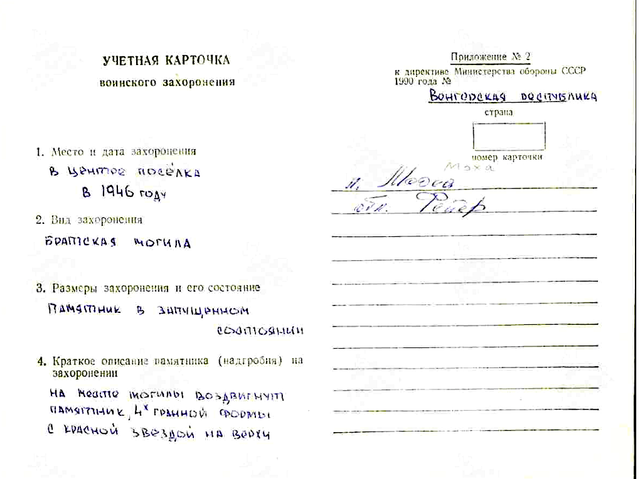 УЧЕТНАЯ КАРТОЧКА
воинского захоронения
1. Место и дата захоронения
В ЦЕНТРЕ ПОСЁЛКА
В 1946 ГОДУ
2. Вид захоронения
БРАТСКАЯ МОГИЛА
3. Размеры захоронения и его состояние
ПАМЯТНИК В ЗАПУЩЕННОМ
СОСТОЯНИИ
4. Краткое описание памятника (надгробия) на
захоронении
НА МЕСТЕ МОГИЛЫ ВОЗДВИГНУТ
ПАМЯТНИК, 4х ГРАННОЙ ФОРМЫ
С КРАСНОЙ ЗВЕЗДОЙ НА ВЕРХУ
Приложение № 2
к директиве Министерства обороны СССР
1990 года №
ВЕНГЕРСКАЯ РЕСПУБЛИКА
страна
номер карточки
Моха
п. Мооха
Фейер